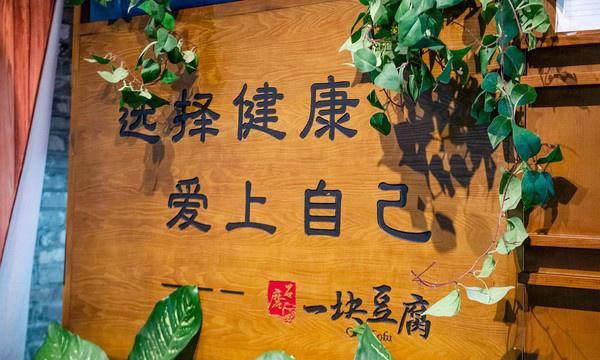 选择健康
爱上自己
——— 一块豆腐